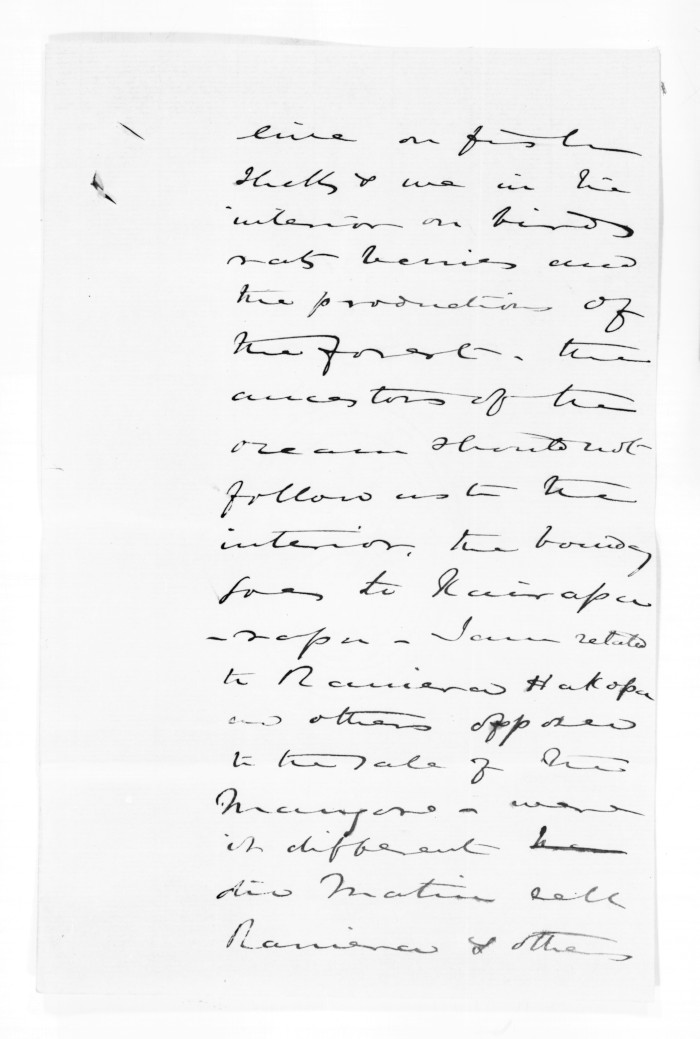 live on fish
shells & we in the
interior on birds
rats berries and
the productions of
the forest. the
ancestors of the
ocean should not
follow us to the
interior. the bounday
goes to Kairapa
-rapa - I am related
to Raniera Hakopa
and others opposed
to the sale of the
Mangore - were
it different
did Matiu sell
Raniera & others